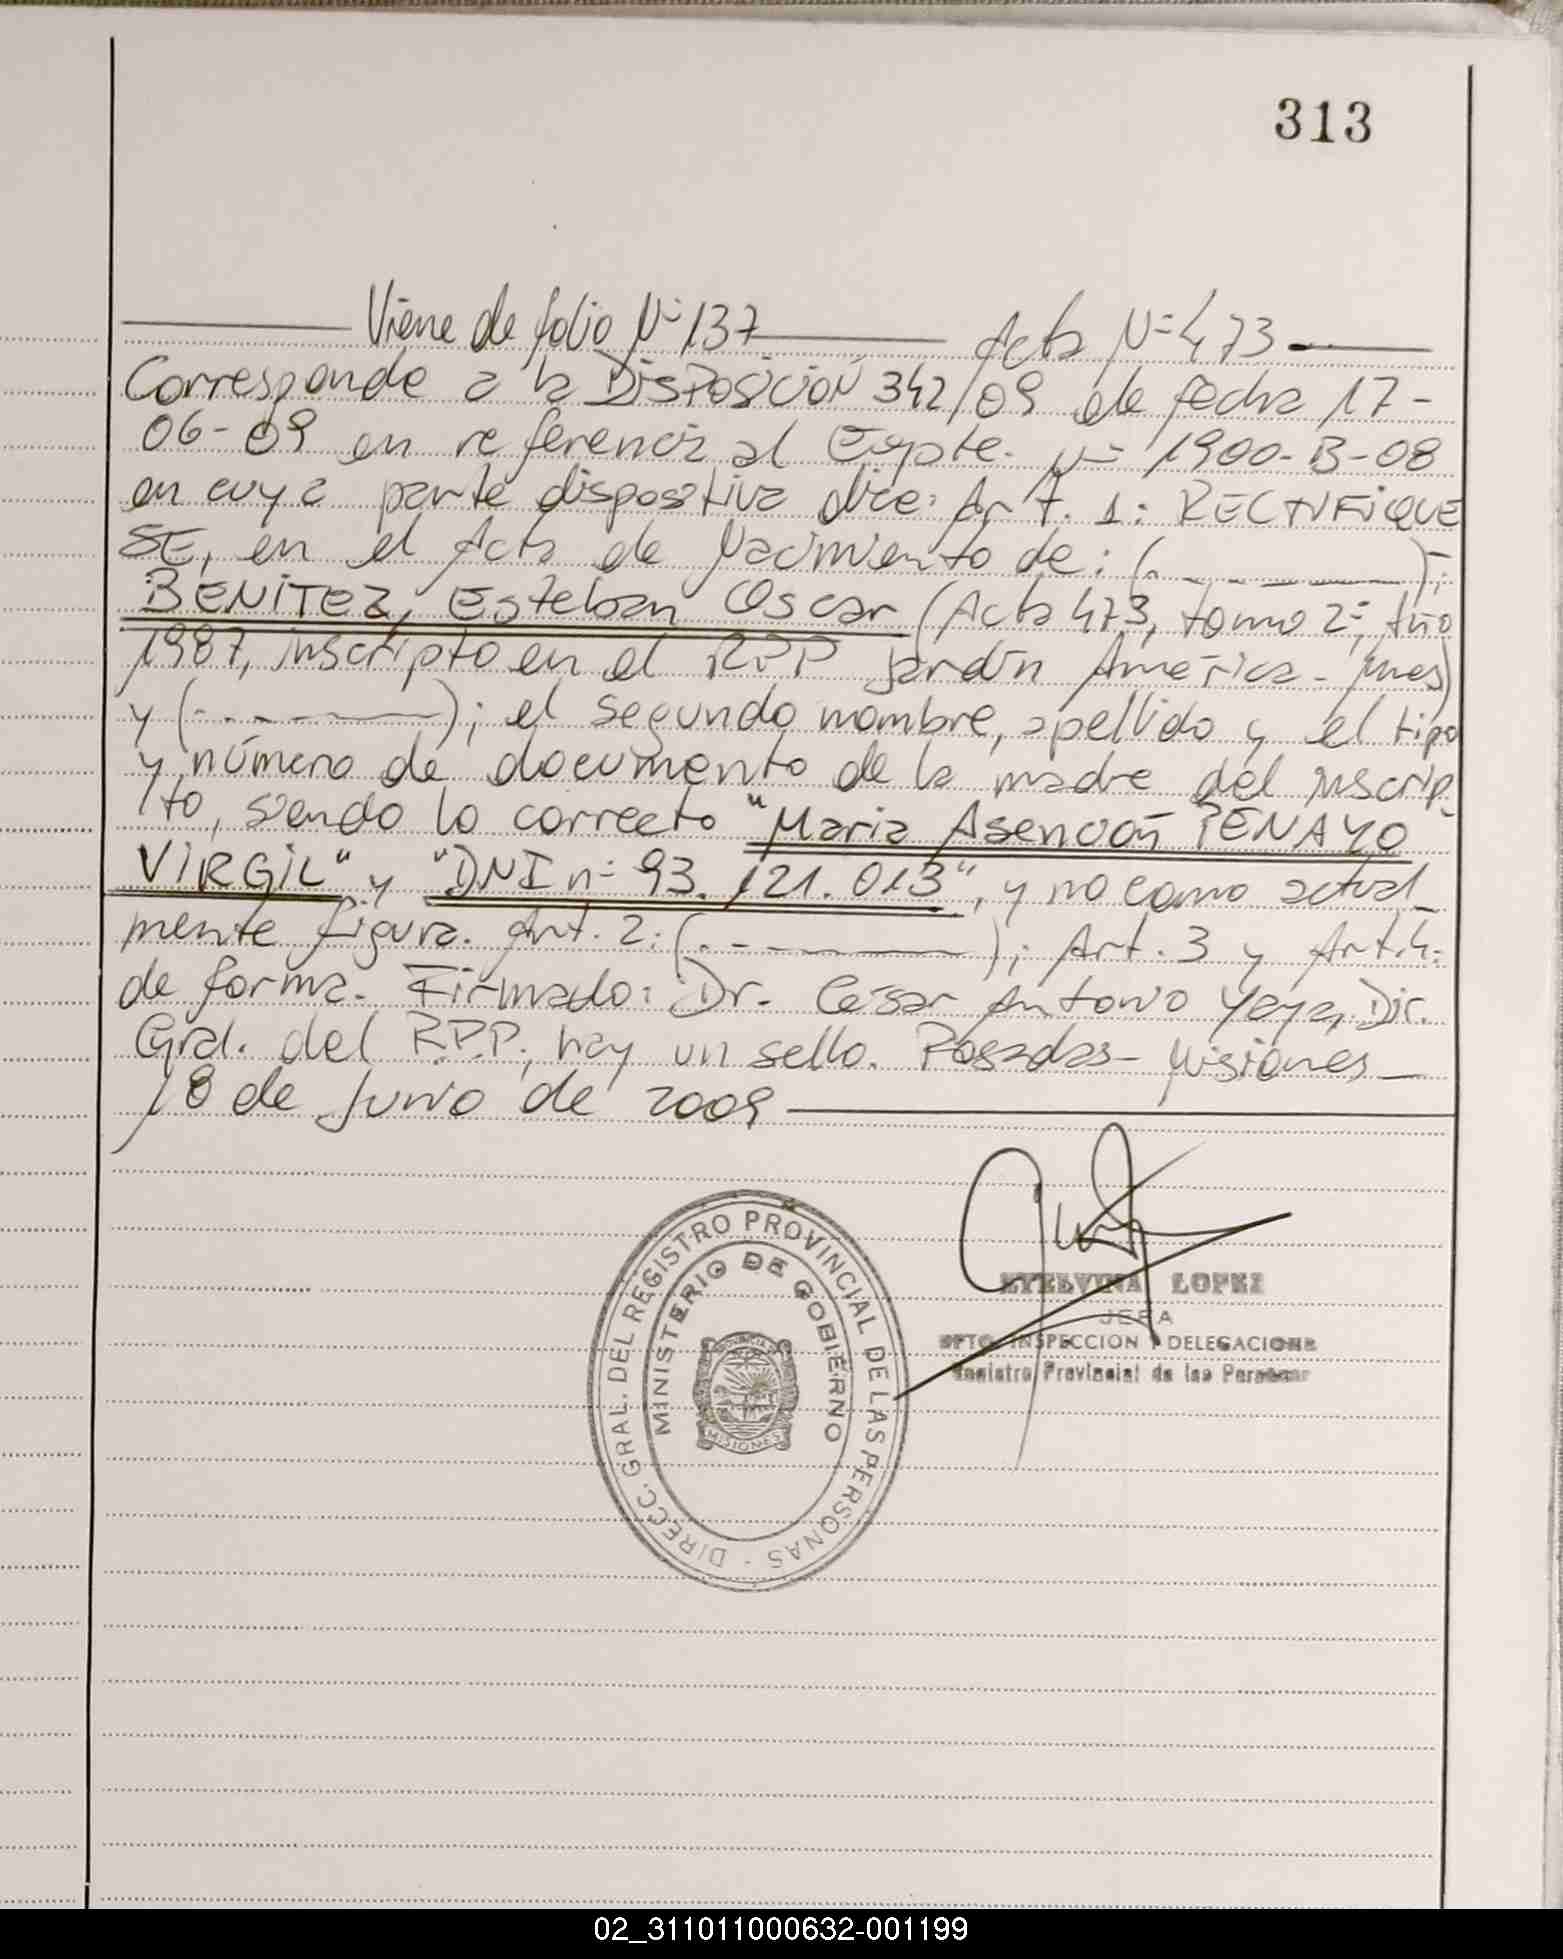 313
Viene de folio Nº 137 Acta Nº 473
Corresponde a la DISPOSICIÓN 342/09 de fecha 17-
06-09 en referencia al Expte. nº 1900-B-08
en cuya parte dispositiva dice: Art. 1: RECTIFIQUE
SE, en el Acta de Nacimiento de: (. - - - ——);
BENITEZ, Esteban Oscar (Acta 473, tomo 2º, Año
1987, inscripto en el RPP Jardín América - Mnes)
y (. - - - ——); el segundo nombre, apellido y el tipo
y número de documento de la madre del inscrip
to, siendo lo correcto "Maria Asención PENAYO
VIRGIL" y "DNI nº 93.121.013", y no como actual
mente figura. Art. 2: (. - ———); Art. 3 y Art. 4:
de forma. Firmado: Dr. César Antonio Yaya, Dir.
Gral. del R.P.P., hay un sello. Posadas - Misiones -
18 de Junio de 2009
DIRECC. GRAL. DEL REGISTRO PROVINCIAL DE LAS PERSONAS -
MINISTERIO DE GOBIERNO
MISIONES
ETELVINA LOPEZ
JEFA
DPTO. INSPECCION Y DELEGACIONES
Registro Provincial de las Personas
02_311011000632-001199